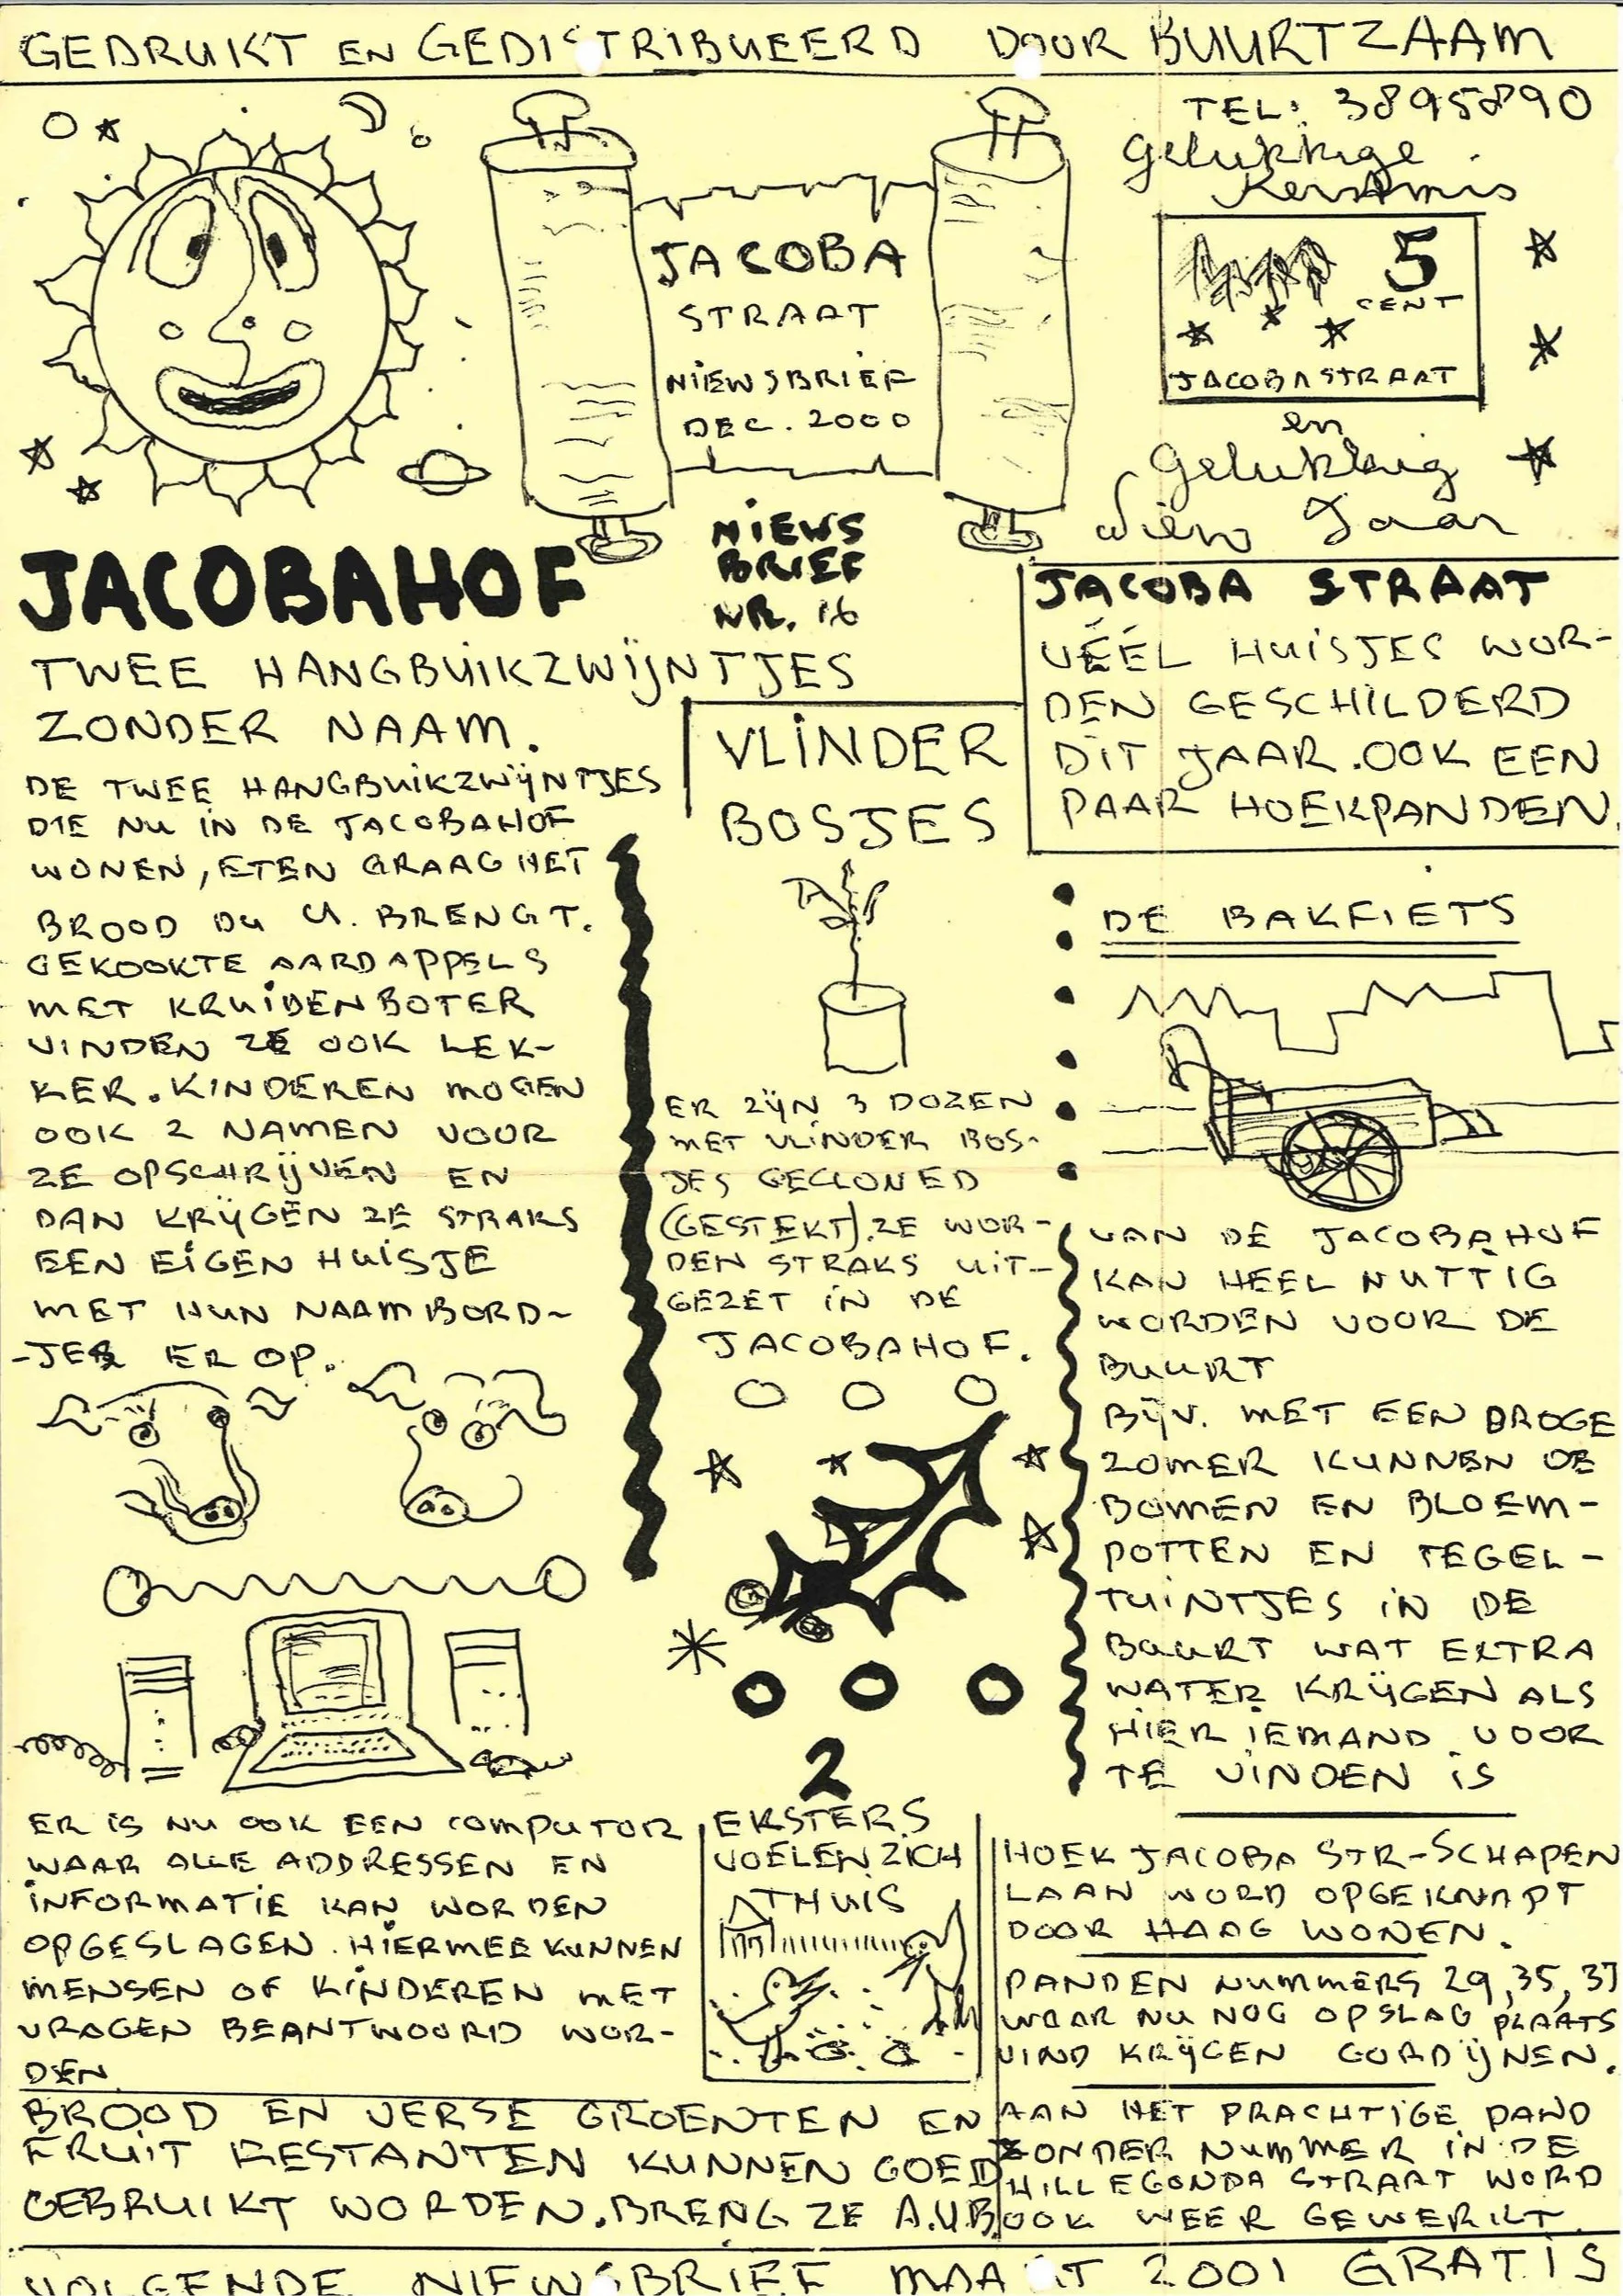 GEDRUKT EN GEDISTRIBUEERD DOOR BUURTZAAM
TEL: 3895890
Gelukkige
Kerstmis
5
CENT
JACOBASTRAAT
en
Gelukkig
Niew Jaar
JACOBA
STRAAT
NIEWSBRIEF
DEC. 2000
NIEWS
BRIEF
NR. 16
JACOBAHOF
TWEE HANGBUIKZWIJNTJES
ZONDER NAAM.
DE TWEE HANGBUIKZWIJNTJES
DIE NU IN DE JACOBAHOF
WONEN, ETEN GRAAG HET
BROOD DU U. BRENGT.
GEKOOKTE AARDAPPELS
MET KRUIDENBOTER
VINDEN ZE OOK LEK-
KER. KINDEREN MOGEN
OOK 2 NAMEN VOOR
ZE OPSCHRIJVEN EN
DAN KRIJGEN ZE STRAKS
EEN EIGEN HUISJE
MET HUN NAAMBORD-
-JES ER OP.
ER IS NU OOK EEN COMPUTOR
WAAR ALLE ADDRESSEN EN
INFORMATIE KAN WORDEN
OPGESLAGEN. HIERMEE KUNNEN
MENSEN OF KINDEREN MET
VRAGEN BEANTWOORD WOR-
DEN.
BROOD EN VERSE GROENTEN EN
FRUIT RESTANTEN KUNNEN GOED
GEBRUIKT WORDEN. BRENG ZE A.U.B.
VLINDER
BOSJES
ER ZIJN 3 DOZEN
MET VLINDER BOS-
JES GECLONED
(GESTEKT). ZE WOR-
DEN STRAKS UIT-
GEZET IN DE
JACOBAHOF.
2
EKSTERS
VOELEN ZICH
THUIS
JACOBA STRAAT
VÉÉL HUISJES WOR-
DEN GESCHILDERD
DIT JAAR. OOK EEN
PAAR HOEKPANDEN.
DE BAKFIETS
VAN DE JACOBAHOF
KAN HEEL NUTTIG
WORDEN VOOR DE
BUURT
BIJV. MET EEN DROGE
ZOMER KUNNEN DE
BOMEN EN BLOEM-
POTTEN EN TEGEL-
TUINTJES IN DE
BUURT WAT EXTRA
WATER KRIJGEN ALS
HIER IEMAND VOOR
TE VINDEN IS
HOEK JACOBA STR-SCHAPEN
LAAN WORD OPGEKNAPT
DOOR HAAG WONEN.
PANDEN NUMMERS 29, 35, 37
WAAR NU NOG OPSLAG PLAATS
VIND KRIJGEN GORDIJNEN.
AAN HET PRACHTIGE PAND
ZONDER NUMMER IN DE
HILLEGONDA STRAAT WORD
OOK WEER GEWERKT.
VOLGENDE NIEWSBRIEF MAART 2001 GRATIS